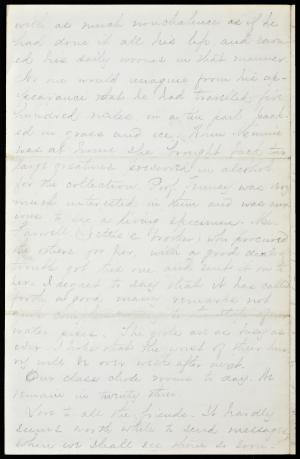 with as much nonchalance as if he
had done it all his life and earn
ed his daily worms in that manner
No one would imagine from his ap-
pearance that he had traveled five
hundred miles in a tin pail pack
ed in grass and ice. When Nannie
was at home she brought back two
large creatures preserved in alcohol
for the collection. Prof. was very
much interested in them and was anx
ious to see a living specimen. Mr.
brother) who procured
the others for her, with a good deal of
trouble got this one and sent it on to
her. I regret to say that it has called
forth a good many remarks not
water pipes. The girls are as busy as
ever. I hope that the worst of their hur
ry will be over week after next.
Our class elude rooms to day. We
remain in twenty three.
Love to all the friends. It hardly
seems worth while to send messages
where we shall see them so soon.